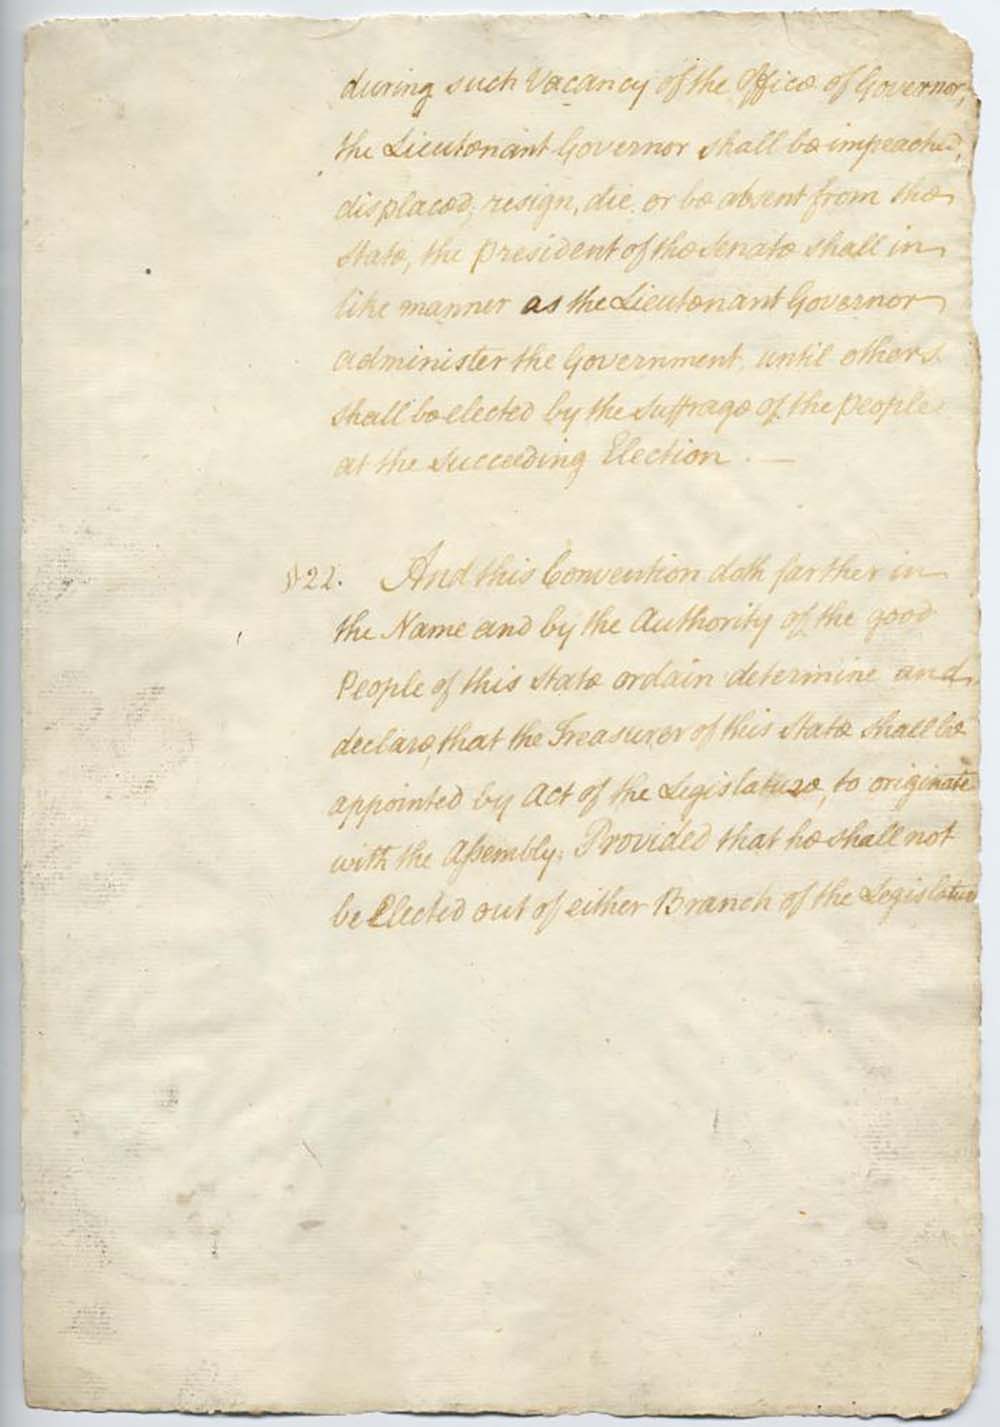 during such Vacancy of the Office of Governor,
the Lieutenant Governor shall be impeached,
displaced, resign, die, or be absent from the
State, the President of the Senate shall in
like manner as the Lieutenant Governor
administer the Government, until others
shall be elected by the Suffrage of the People
at the Succeeding Election. —
§ 22. And this Convention doth farther in
the Name and by the Authority of the good
People of this State ordain determine and
declare, that the Treasurer of this State shall be
appointed by Act of the Legislature, to originate
with the Assembly: Provided that he shall not
be Elected out of either Branch of the Legislature